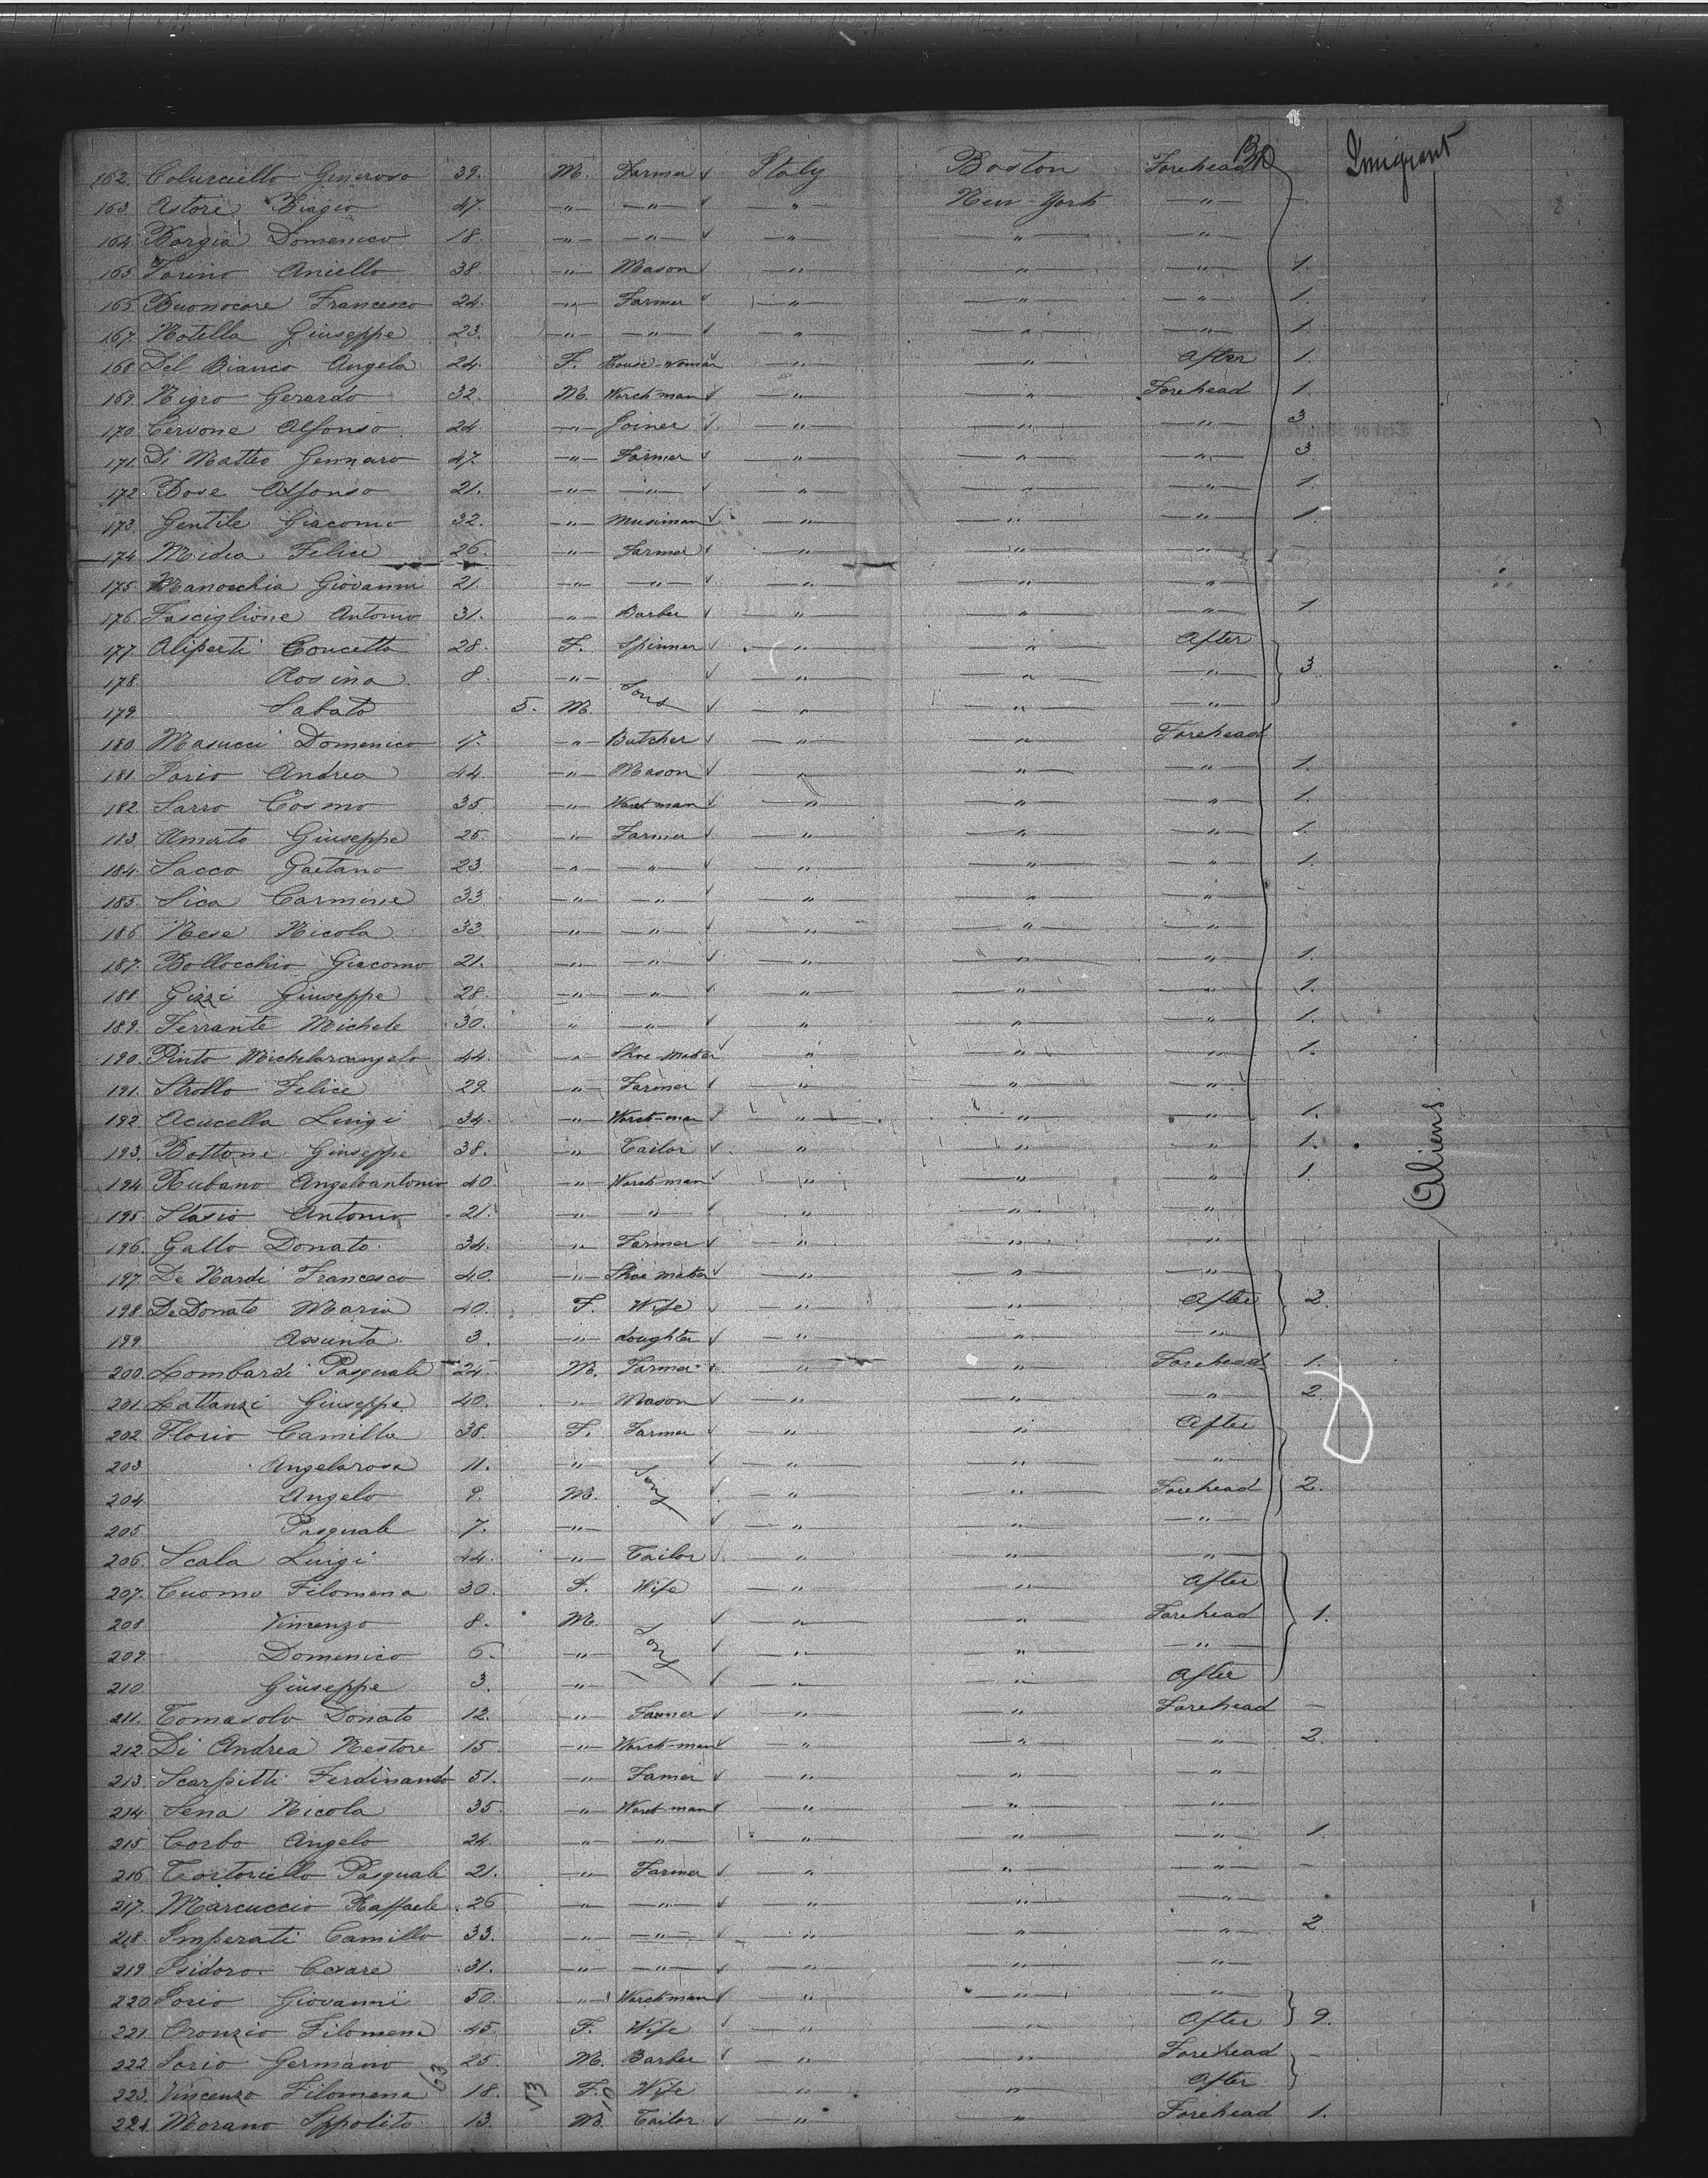 162. Colucciello Generoso 39. M. Farmer Italy Boston Forehead Imigrant
163. Astore Biagio 47. -"- -"- " New-York -"- -
164. Borgia Domenico 18. -"- -"- -"- " -"-
165. Torino Aniello 38. -"- Mason -"- " -"- 1.
166. Buonocore Francesco 24. -"- Farmer -"- -"- -"- 1.
167. Rotella Giuseppe 23. -"- -"- " -"- -"- 1.
168. Del Bianco Angela 24. F. House-woman -"- " After 1.
169. Nigro Gerardo 32. M. Worckman -"- " Forehead 1.
170. Cervone Alfonso 24. -"- Joiner -"- -"- -"- 3
171. Di Matteo Gennaro 47. -"- Farmer -"- -"- -"- 3
172. Bove Alfonso 21. -"- -"- " -"- -"- 1.
173. Gentile Giacomo 32. -"- Musiman -"- -"- -"- 1.
174. Midea Felice 26. -"- Farmer -"- -"- -"- -
175. Manocchia Giovanni 21. -"- -"- -"- " "
176. Fasciglione Antonio 31. -"- Barber " -"- -"- 1
177. Aliperti Concetta 28. F. Spinner -"- -"- After
178. Rosina 8. -"- Sons -"- -"- -"- 3.
179. Sabato 5. M. -"- -"- -"-
180. Masucci Domenico 7. -"- Butcher -"- " Forehead
181. Iorio Andrea 44. -"- Mason " -"- -"- 1.
182. Sarro Cosmo 35. -"- Worckman -"- -"- " 1.
183. Amato Giuseppe 25. -"- Farmer -"- -"- -"- 1.
184. Sacco Gaetano 23. -"- -"- -"- -"- -"- 1.
185. Sica Carmine 33 -"- -"- -"- -"- -"- -
186. Nese Nicola 33. -"- -"- -"- -"- -"-
187. Bollocchio Giacomo 21. -"- -"- -"- -"- -"- 1.
188. Gizzi Giuseppe 28. -"- -"- -"- -"- -"- 1.
189. Ferrante Michele 30. " -"- -"- -"- -"- 1.
190. Pinto Michelarcangelo 44. -"- Shoe maker " -"- -"- 1.
191. Strollo Felice 29. -"- Farmer -"- -"- -"-
192. Acucella Luigi 34. -"- Worck-man -"- -"- -"- 1. Aliens
193. Bottone Giuseppe 38. -"- Tailor -"- -"- " 1.
194. Rubano Angeloantonio 40. -"- Worckman -"- -"- -"- 1.
195. Stasio Antonio 21. -"- -"- -"- -"- "
196. Gallo Donato 34. -"- Farmer -"- -"- -"-
197. De Nardi Francesco 40. -"- Shoe maker -"- " -"-
198. DeDonato Maria 40. F. Wife -"- -"- After 2.
199. Assunta 3. -"- doughter -"- " -"-
200. Lombardi Pasquale 24. M. Farmer -"- " Forehead 1.
201. Lattanzi Giuseppe 40. " Mason -"- " -"- 2.
202. Florio Camilla 38. F. Farmer -"- -"- After
203. Angelarosa 11. -"- Sons -"- -"- -"-
204. Angelo 9. M. -"- -"- Forehead 2.
205. Pasquale 7. -"- -"- -"- -"-
206. Scala Luigi 44. -"- Tailor -"- -"- -"-
207. Cuomo Filomena 30. F. Wife -"- -"- After
208. Vincenzo 8. M. Sons -"- " Forehead 1.
209. Domenico 6. -"- -"- -"- -"-
210. Giuseppe 3. -"- -"- -"- After
211. Tomasolo Donato 12. -"- Farmer -"- -"- Forehead -
212. Di Andrea Nestore 15. -"- Worck-man -"- -"- -"- 2.
213. Scarpitti Ferdinando 51. -"- Famer -"- -"- -"-
214. Sena Nicola 35. -"- Worck-man -"- -"- -"-
215. Corbo Angelo 24. -"- -"- -"- -"- -"- 1.
216. Tortoriello Pasquale 21. -"- Farmer -"- -"- -"- -
217. Marcuccio Raffaele 26 -"- -"- -"- -"- -"-
218. Imperati Camillo 33. -"- -"- -"- -"- -"- 2
219. Isidoro Cesare 31. -"- -"- -"- -"- -"-
220. Iorio Giovanni 50. -"- Worckman -"- -"- -"-
221. Oronzio Filomena 45. F. Wife -"- -"- After 9.
222. Iorio Germano 25. M. Barber -"- -"- Forehead -
223. Vincenzo Filomena 18. F. Wife -"- -"- After
224. Morano Ippolito 13. M. Tailor -"- " Forehead 1.
63 53 10